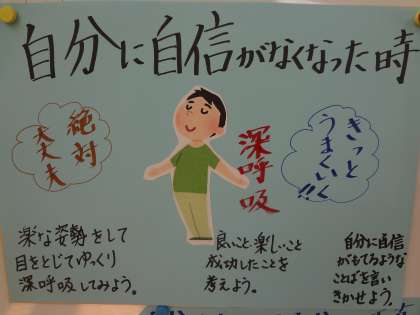 自分に自信がなくなった時
絶対
大丈夫
深呼吸
きっと
うまくいく!!
楽な姿勢をして
目をとじてゆっくり
深呼吸してみよう。
良いこと楽しいこと
成功したことを
考えよう。
自分に自信
がもてるような
ことばを言い
きかせよう。